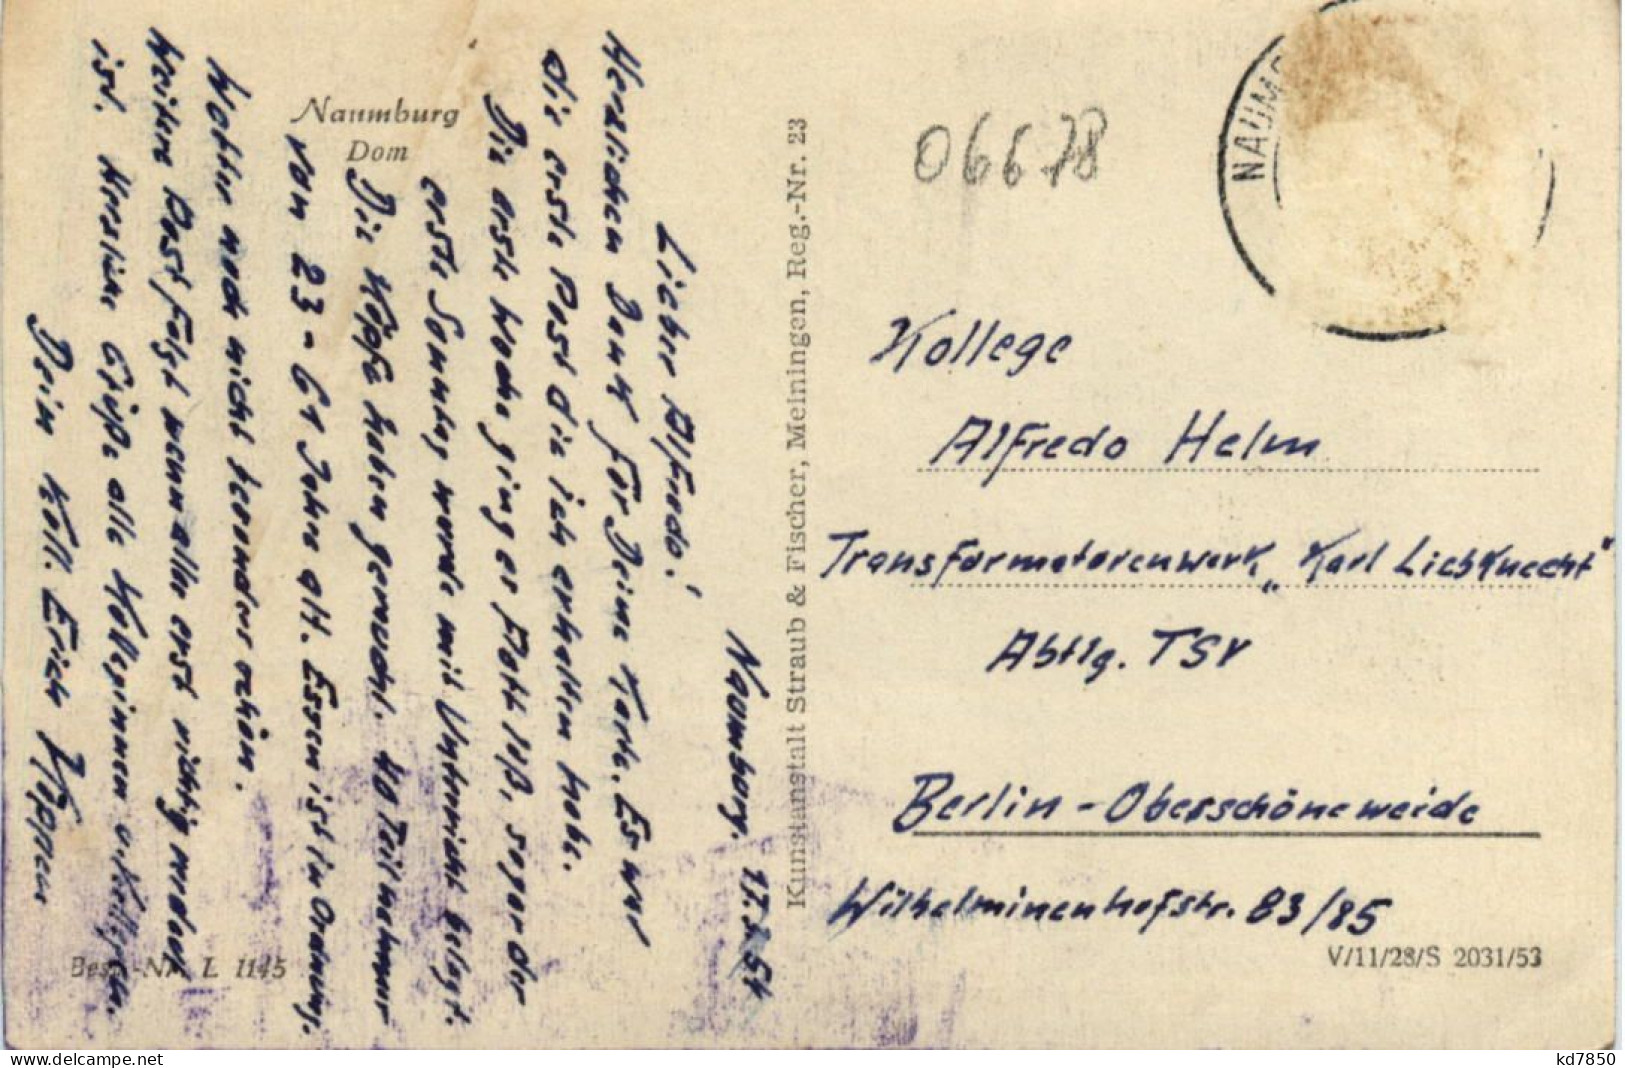 Naumburg
Dom
Naumburg. 17.3.54
Lieber Alfredo!
Herzlichen Dank für Deine Karte. Es war
die erste Post die ich erhalten habe.
Die erste Woche ging es flott los, sogar der
erste Sonntag wurde mit Unterricht belegt.
Die Köpfe haben geraucht. 40 Teilnehmer
von 23 - 61 Jahre alt. Essen ist in Ordnung.
Wetter noch nicht besonders schön.
Weitere Post folgt wenn alles erst richtig
ist. Grüße alle Kolleginnen u. Kollegen.
Dein Koll. Erich
Best.-Nr. L 1145
Kunstanstalt Straub & Fischer, Meiningen, Reg.-Nr. 23
06678
NAUMB
Kollege
Alfredo Helm
Transformatorenwerk „Karl Liebknecht"
Abtlg. TSV
Berlin - Oberschöneweide
Wilhelminenhofstr. 83/85
V/11/28/S 2031/53
kd7850